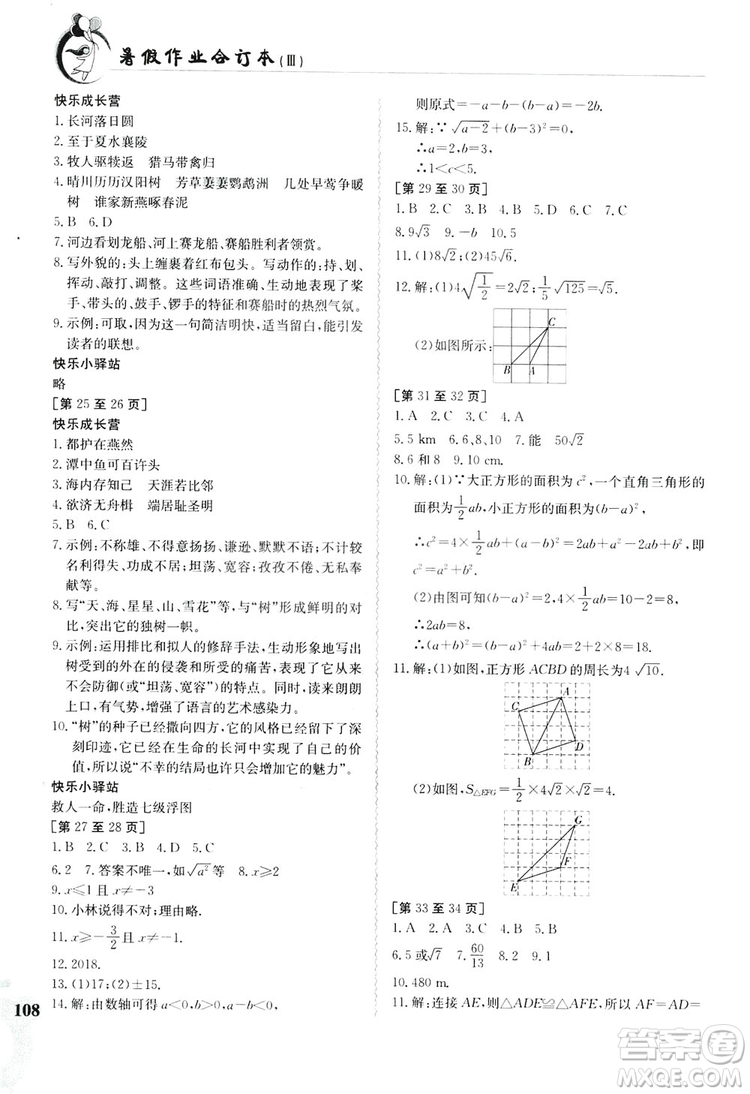 暑假作业合订本(Ⅲ)
快乐成长营
1. 长河落日圆
2. 至于夏水襄陵
3. 牧人驱犊返　猎马带禽归
4. 晴川历历汉阳树　芳草萋萋鹦鹉洲　几处早莺争暖
树　谁家新燕啄春泥
5. B　6. D
7. 河边看划龙船、河上赛龙船、赛船胜利者领赏。
8. 写外貌的:头上缠裹着红布包头。写动作的:持、划、
挥动、敲打、调整。这些词语生动形象地表现了桨
手、带头的、鼓手、锣手的特征和赛船时的热烈气氛。
9. 示例:可取,因为这一句简洁明快,含蓄留白,能引发
读者的联想。
快乐小驿站
略
[第 25 至 26 页]
快乐成长营
1. 都护在燕然
2. 潭中鱼可百许头
3. 海内存知己　天涯若比邻
4. 欲济无舟楫　端居耻圣明
5. B　6. C
7. 示例:不称雄、不得意扬扬、谦逊、默默不语;不计较
名利得失、功成不居;坦荡、宽容;孜孜不倦、无私奉
献等。
8. 写“天、海、星星、山、雪花”等,与“树”形成鲜明的对
比,突出它的独树一帜。
9. 示例:运用排比和拟人的修辞手法,生动形象地写出
树受到的外在的侵袭和所遭受的痛苦,表现了它从
不会防御(或“坦荡、宽容”)的特点。同时,读来朗朗
上口,有气势,增强了语言的艺术感染力。
10. “树”的种子已经撒向四方,它的风格已经留下了深
刻印迹,它必将在历史的长河中显示出自己的价
值,因此说“不幸的结局也许只会增加它的魅力”。
快乐小驿站
救人一命,胜造七级浮图
[第 27 至 28 页]
1. B　2. C　3. B　4. D　5. D
6. 2　7. 答案不唯一,如√a²　8. x≥2
9. x≤3 且 x≠-3
10. 小林说得不对;理由略.
11. x≥-3/2 且 x≠1
12. 2018.
13. (1)17;(2)±15.
14. 解:由数轴可得 a<0,b>0,a-b<0,
则原式=-a-b-(b-a)=-2b.
15. 解:∵√a-2+(b-3)²=0,
∴a=2,b=3;
∴1<c<5.
[第 29 至 30 页]
1. B　2. C　3. A　4. B　5. C　6. D　7. A
8. 9√3　9. -b　10. 4
11. (1)8√2;(2)45√2.
12. 解:(1)4√1/2=2√2;1/5√125=√5.
(2)如图所示:
C
B A
[第 31 至 32 页]
1. A　2. C　3. C　4. A
5. 5 km　6. 6、8、10　7. 能　50√2
8. 6 和 8　9. 10 cm.
10. 解:(1)∵大正方形的面积为 c²,一个直角三角形的
面积为1/2ab,小正方形的面积为(b-a)²,
∴c²=4×1/2ab+(b-a)²=2ab+a²-2ab+b²,即
c²=a²+b².
(2)由图可知(b-a)²=2,4×1/2ab=10-2=8,
∴2ab=8,
∴(a+b)²=(b-a)²+4ab=2+2×8=18.
11. 解:(1)如图,正方形 ACBD 的周长为4√10.
A
C
D
B
(2)如图,S△EFG=1/2×4√2×√2=4.
G
F
E
[第 33 至 34 页]
1. A　2. A　3. C　4. B　5. D
6. 5 或√7　7. 60/13　8. 2　9. 1
10. 480 m.
11. 解:连接 AE,则△ADE≌△AFE,所以 AF=AD=
108
答案圈